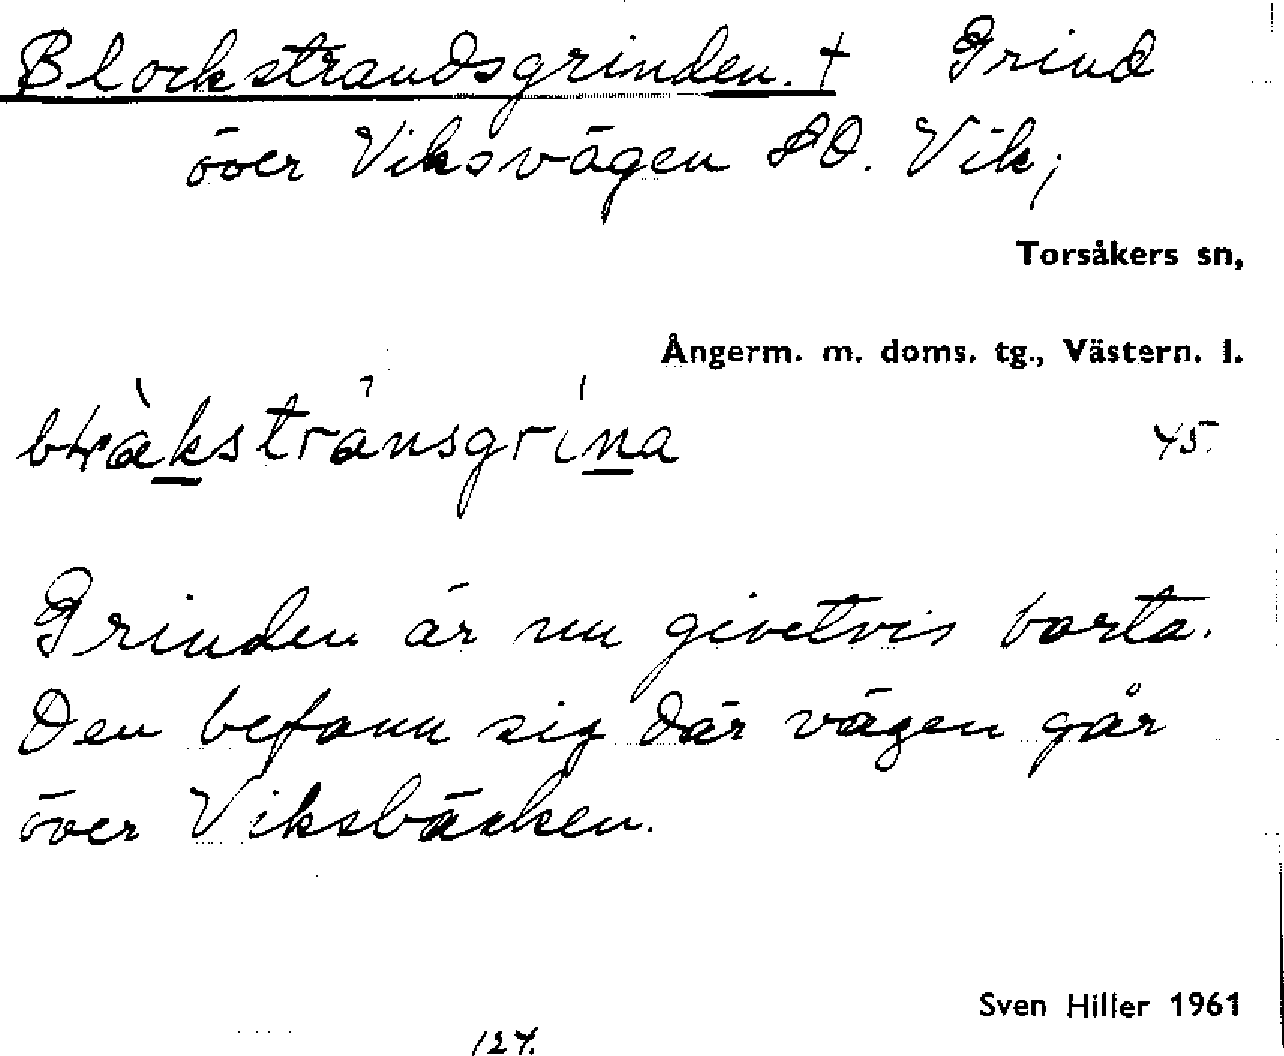 Blockstrandsgrinden. † Grind
över Viksvägen SO. Vik,
Torsåkers sn,
Ångerm. m. doms. tg., Västern. l.
45.
Grinden är nu givetvis borta.
Den befann sig där vägen går
över Viksbäcken.
Sven Hiller 1961
127.